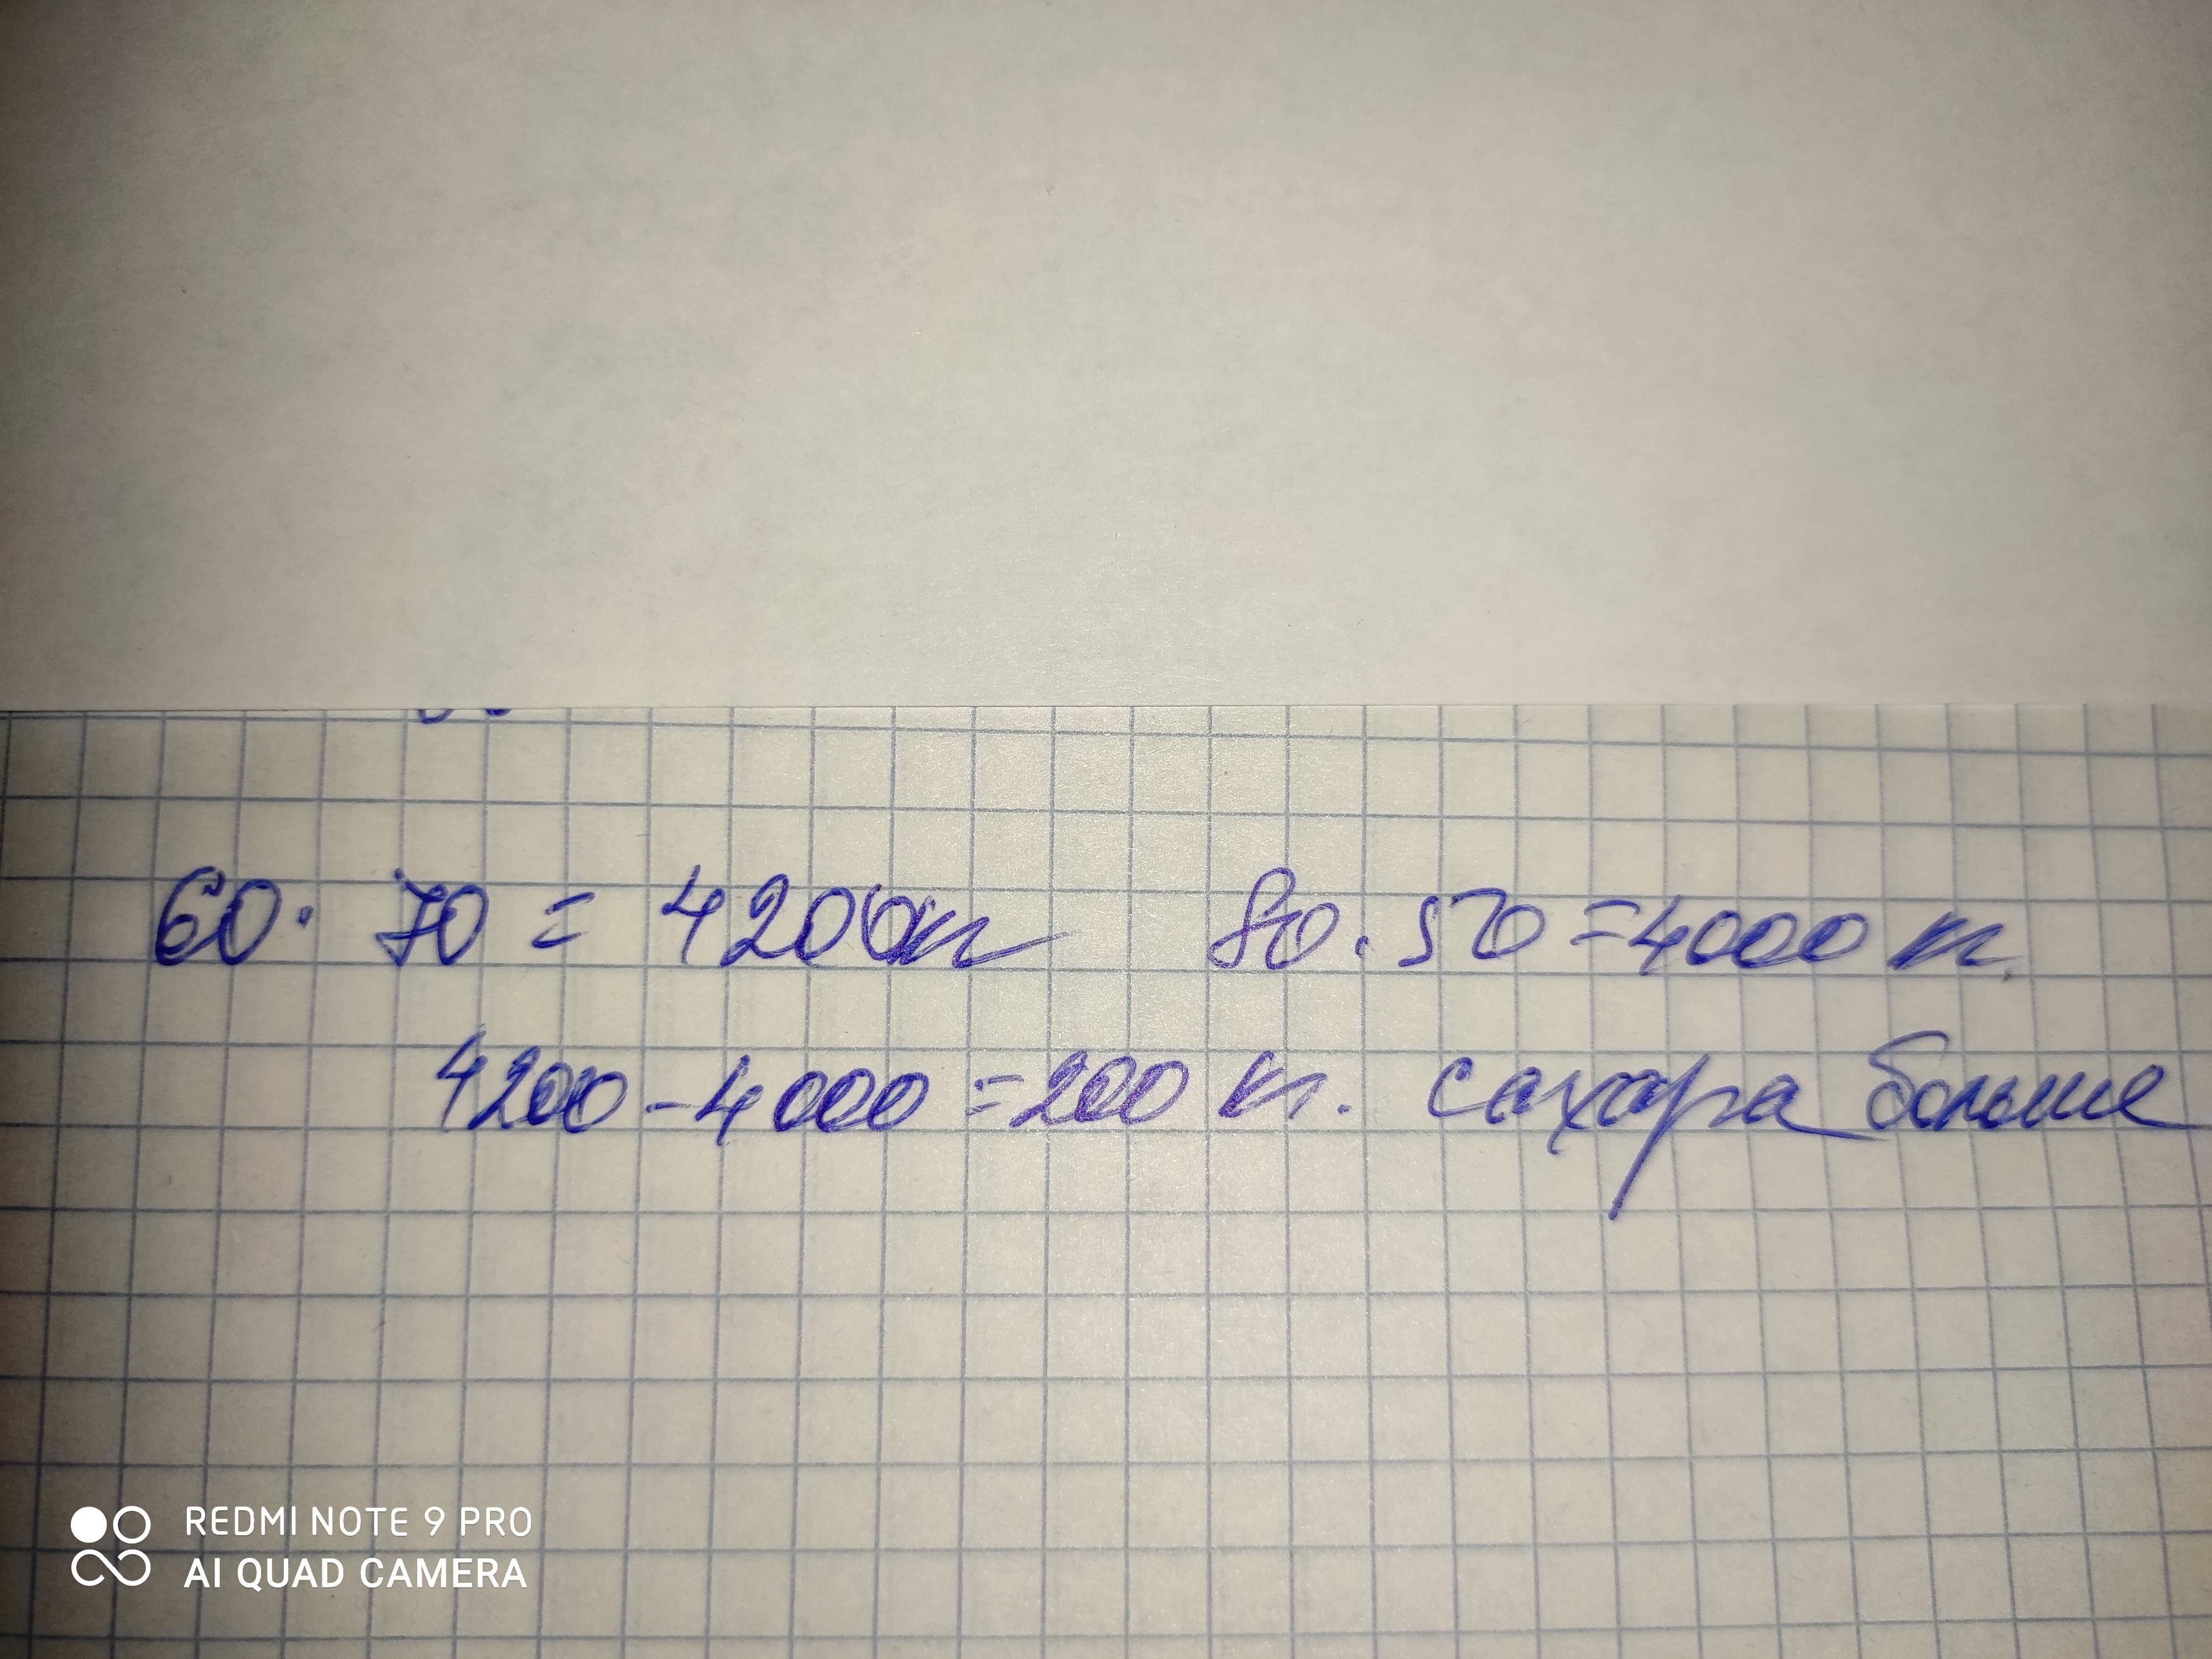 60 · 70 = 4200кг 80 . 50 = 4000 кг.
4200 - 4000 = 200 кг. сахара больше
REDMI NOTE 9 PRO
AI QUAD CAMERA